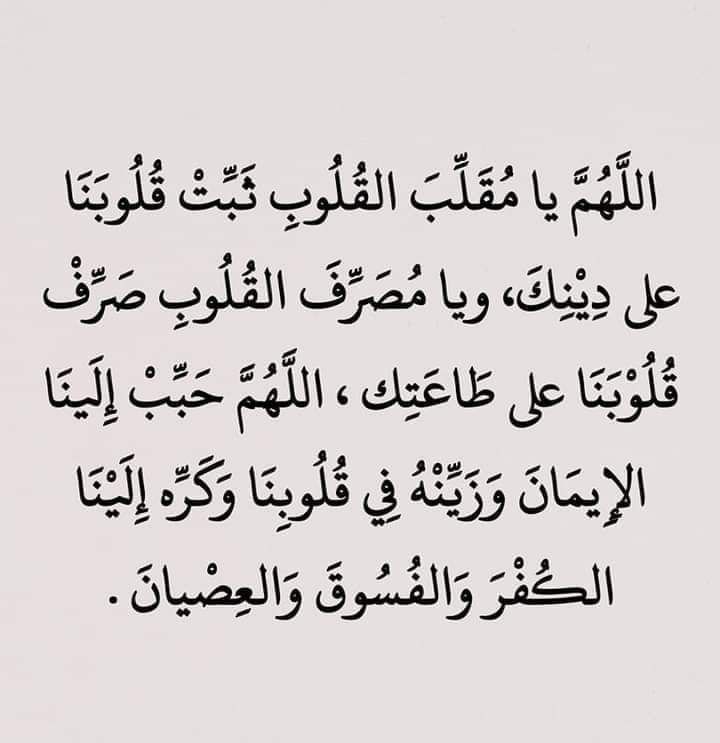 اللَّهُمَّ يا مُقَلِّبَ القُلُوبِ ثَبِّتْ قُلُوبَنَا
على دِيْنِكَ، ويا مُصَرِّفَ القُلُوبِ صَرِّفْ
قُلُوْبَنَا على طَاعَتِك ، اللَّهُمَّ حَبِّبْ إِلَينَا
الإِيمَانَ وَزَيِّنْهُ فِي قُلُوبِنَا وَكَرِّه إِلَيْنَا
الكُفْرَ وَالفُسُوقَ وَالعِصْيانَ .